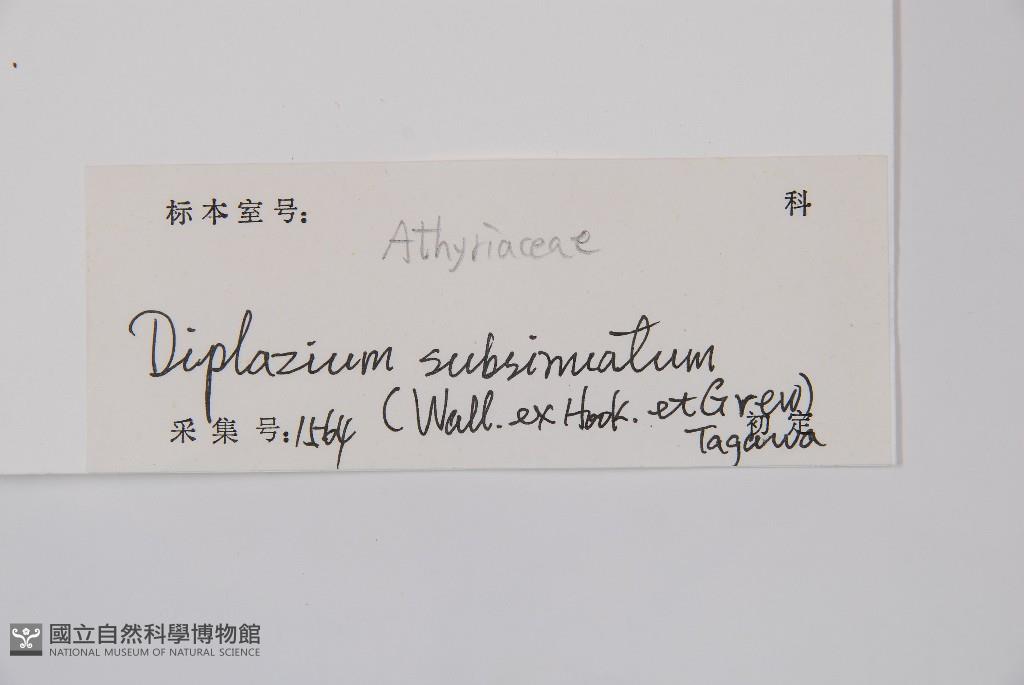 标本室号: 科
Athyriaceae
Diplazium subsinuatum
(Wall. ex Hook. et Grev.)
采集号: 1564 初定
Tagawa
國立自然科學博物館
NATIONAL MUSEUM OF NATURAL SCIENCE